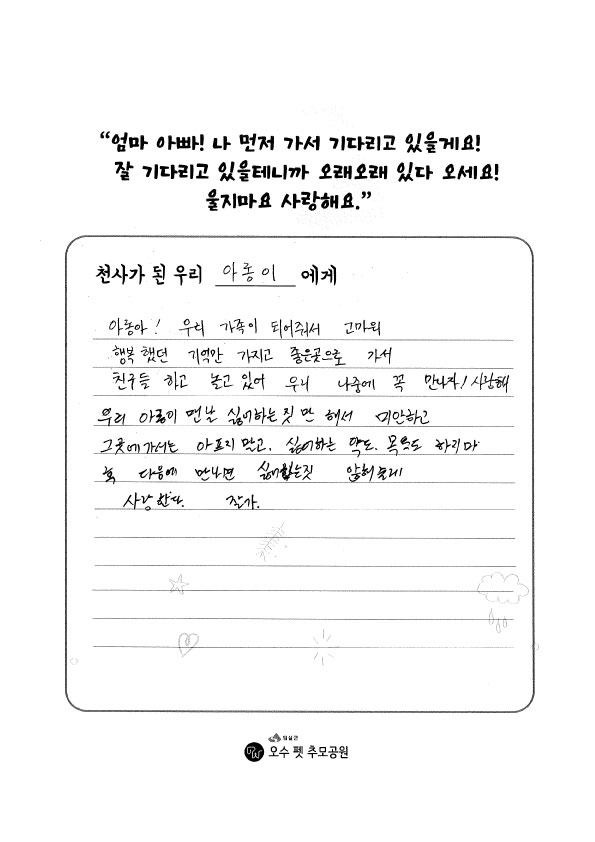 “엄마 아빠! 나 먼저 가서 기다리고 있을게요!
잘 기다리고 있을테니까 오래오래 있다 오세요!
울지마요 사랑해요.”
천사가 된 우리 아롱이 에게
아롱아! 우리 가족이 되어줘서 고마워
행복했던 기억만 가지고 좋은곳으로 가서
친구들 하고 놀고 있어 우리 나중에 꼭 만나자! 사랑해
우리 아롱이 맨날 싫어하는 짓만 해서 미안하고
그곳에가서는 아프지 말고, 싫어하는 약도, 목욕도 하지마
다음에 만나면 싫어하는짓 않할게
사랑한다. 잘가.
임실군
오수 펫 추모공원